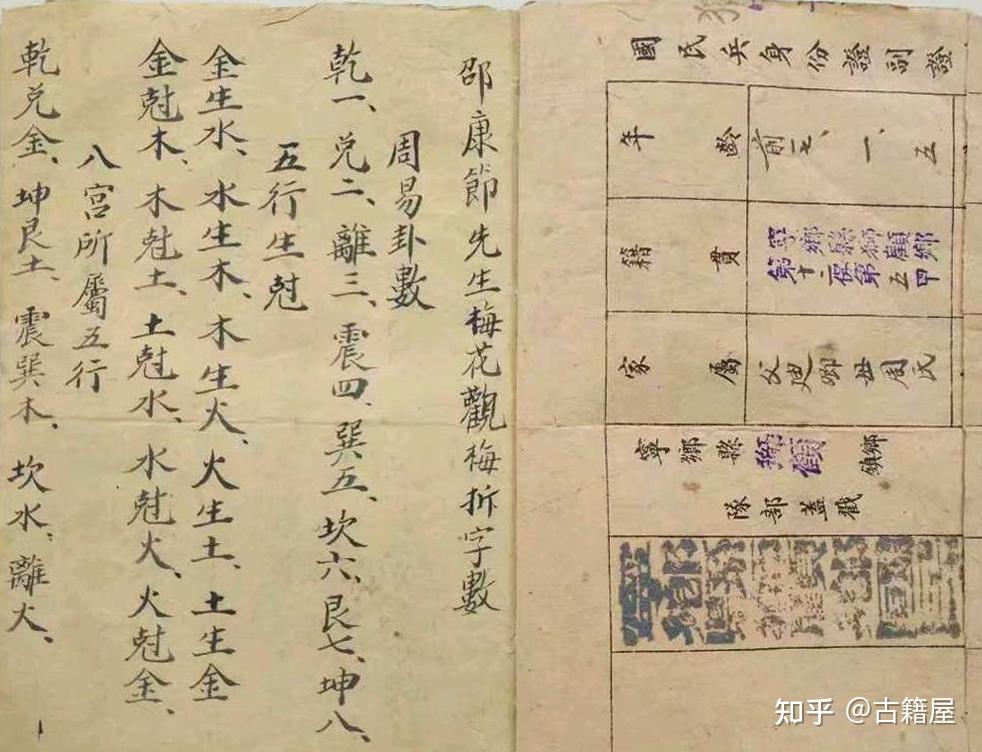 邵康節先生梅花觀梅拆字數
周易卦數
乾一、兌二、離三、震四、巽五、坎六、艮七、坤八、
五行生尅
金生水、水生木、木生火、火生土、土生金
金尅木、木尅土、土尅水、水尅火、火尅金、
八宮所屬五行
乾兌金、坤艮土、震巽木、坎水、離火、
國民兵身份證副證
年齡 前一七、一、五
籍貫 寧鄉縣獅顧鄉
第十二保第五甲
家屬 父迪卿母周氏
寧鄉縣獅顧鄉鎮
隊部蓋戳
知乎 @古籍屋